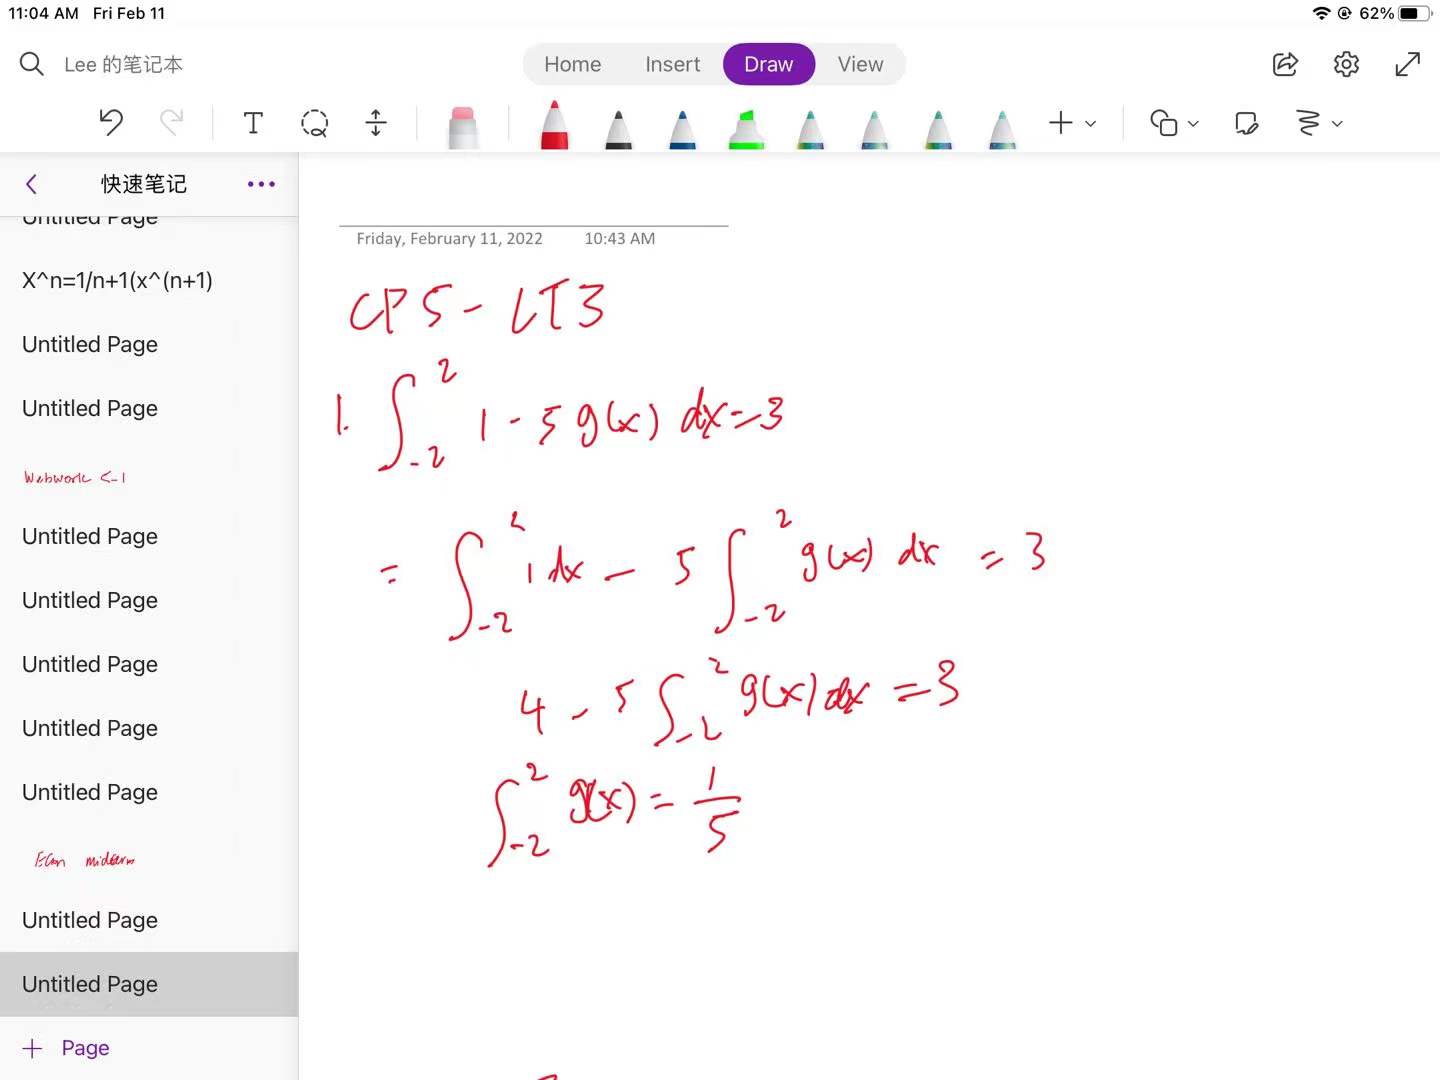 11:04 AM Fri Feb 11
62%
Lee 的笔记本
Home Insert Draw View
T
快速笔记
Untitled Page
X^n=1/n+1(x^(n+1)
Untitled Page
Untitled Page
Webwork
Untitled Page
Untitled Page
Untitled Page
Untitled Page
Untitled Page
Econ midterm
Untitled Page
Untitled Page
+ Page
Friday, February 11, 2022 10:43 AM
CP5 - LT3
1. ∫_{-2}^{2} 1 - 5 g(x) dx = 3
= ∫_{-2}^{2} 1 dx - 5 ∫_{-2}^{2} g(x) dx = 3
4 - 5 ∫_{-2}^{2} g(x) dx = 3
∫_{-2}^{2} g(x) = 1/5